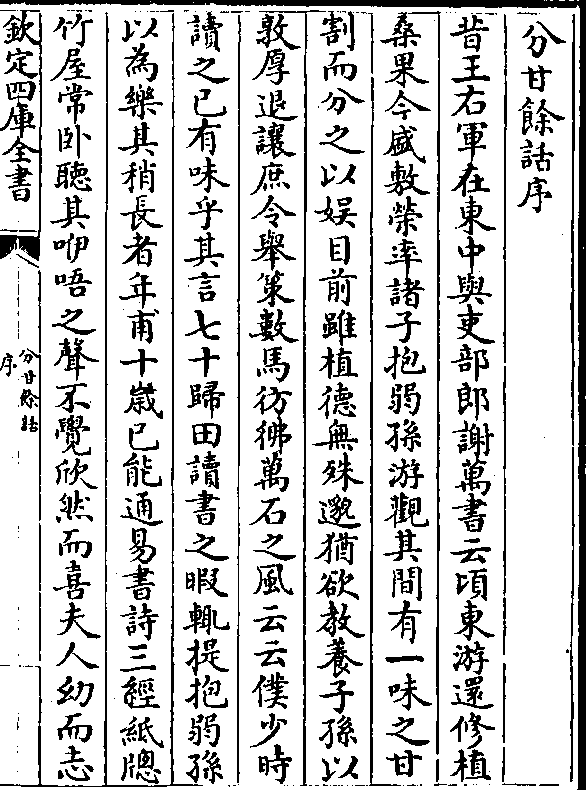 分甘餘話序
昔王右軍在東中與吏部郎謝萬書云頃東游還修植
桑果今盛敷榮率諸子抱弱孫游觀其間有一味之甘
割而分之以娱目前雖植德無殊邈猶欲教養子孫以
敦厚退讓庶令舉策數馬彷彿萬石之風云云僕少時
讀之已有味乎其言七十歸田讀書之暇輒提抱弱孫
以為樂其稍長者年甫十歲已能通易書詩三經紙牕
竹屋常卧聽其咿唔之聲不覺欣然而喜夫人幼而志
欽定四庫全書
分甘餘話
序